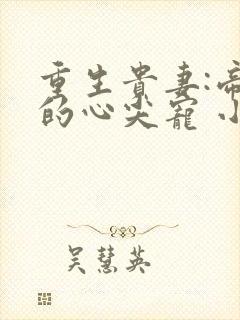 重生贵妻:帝
的心尖宠 小
吴慧英